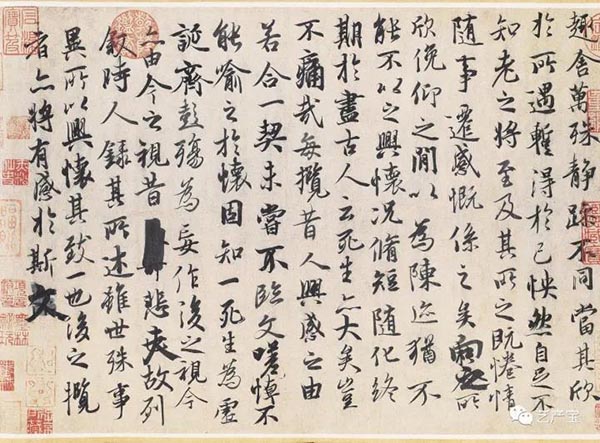 趣舍萬殊靜躁不同當其欣
於所遇蹔得於己怏然自足不
知老之將至及其所之既惓情
隨事遷感慨係之矣向之所
欣俛仰之閒以為陳迹猶不
能不以之興懷況脩短隨化終
期於盡古人云死生亦大矣豈
不痛哉每攬昔人興感之由
若合一契未嘗不臨文嗟悼不
能喻之於懷固知一死生為虛
誕齊彭殤為妄作後之視今
亦由今之視昔悲夫故列
敘時人錄其所述雖世殊事
異所以興懷其致一也後之攬
者亦將有感於斯文
艺产宝